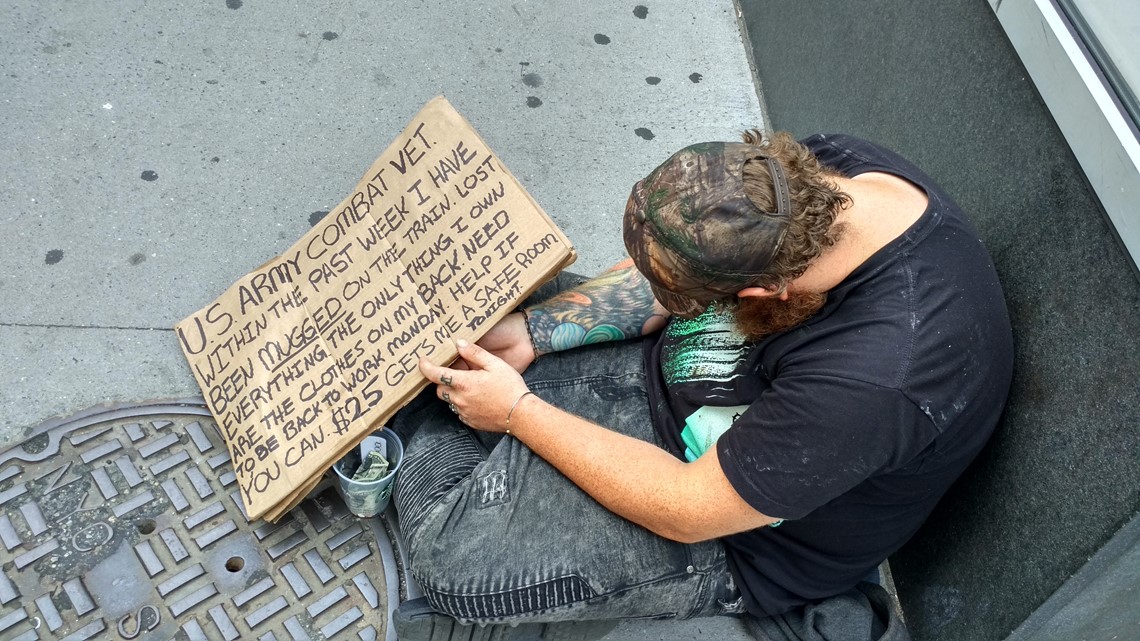 U.S. ARMY COMBAT VET.
WITHIN THE PAST WEEK I HAVE
BEEN MUGGED ON THE TRAIN. LOST
EVERYTHING THE ONLY THING I OWN
ARE THE CLOTHES ON MY BACK NEED
TO BE BACK TO WORK MONDAY. HELP IF
YOU CAN. $25 GETS ME A SAFE ROOM
TONIGHT.